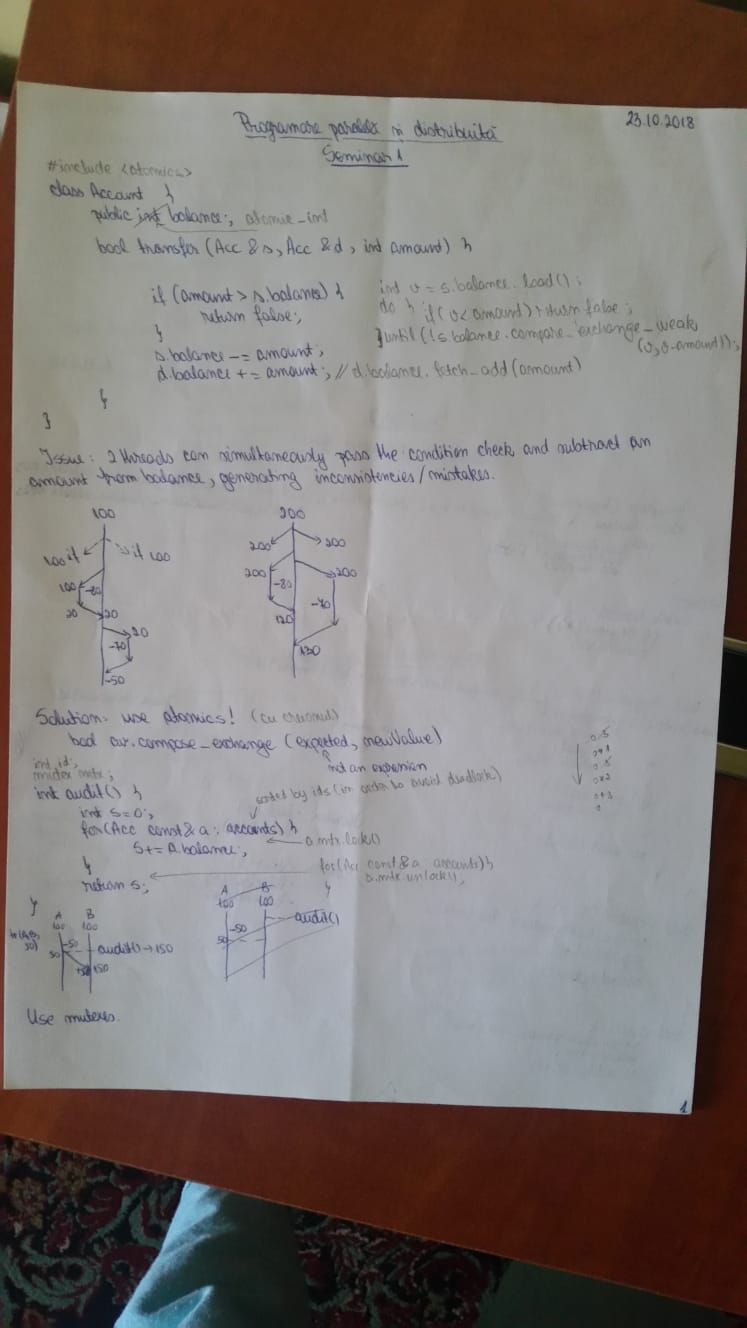 Programare paralelă și distribuită
23.10.2018
Seminar 1
#include <atomics>
class Account {
public int balance; atomic_int
bool transfer (Acc &s, Acc &d, int amount) {
if (amount > s.balance) {
return false;
}
s.balance -= amount;
d.balance += amount; // d.balance.fetch_add(amount)
int v = s.balance.load();
do { if (v < amount) return false;
} until (!s.balance.compare_exchange_weak
(v, v-amount));
}
}
Issue: 2 threads can simultaneously pass the condition check and subtract an
amount from balance, generating inconsistencies / mistakes.
100
100 if if 100
100 -80
20 20
20
-70
-50
200
200 200
200 -80 200
-70
120
130
Solution: use atomics! (cu creionul)
bool av.compose_exchange (expected, newValue)
not an expression
int id;
mutex mtx;
int audit() {
sorted by ids (in order to avoid deadlock)
int S=0;
for (Acc const & a : accounts) {
S += a.balance;
a.mtx.lock()
}
for (Acc const & a accounts) {
a.mtx.unlock();
}
return s;
}
A B
100 100
50)
-50
50
audit() → 150
150 150
A B
100 100
-50
50
audit()
Use mutexes.
1